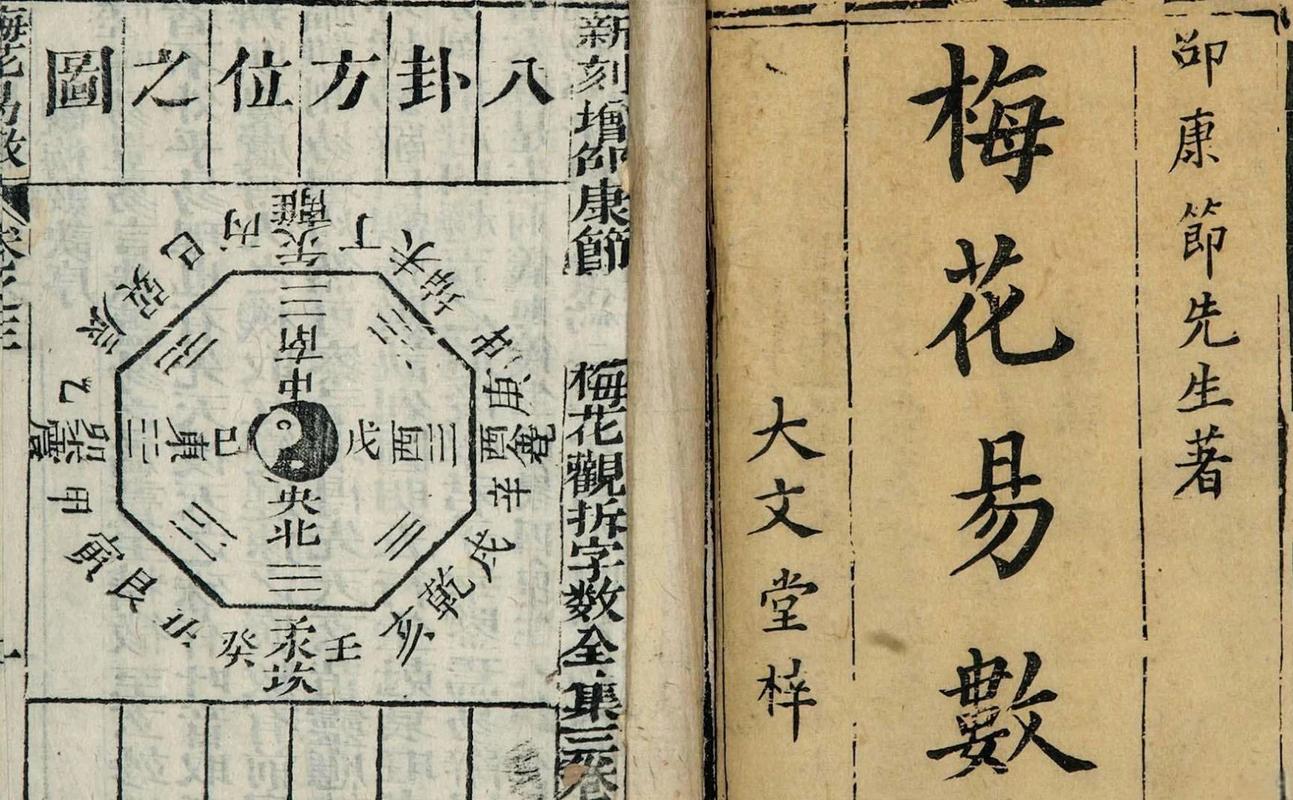 邵康節先生著
梅花易數
大文堂梓
新刻增邵康節
梅花觀拆字數全集三卷
八卦方位之圖
離
丙
丁
未
坤
申
庚
酉
兌
辛
戌
乾
亥
壬
坎
癸
丑
艮
寅
甲
震
乙
辰
巽
巳
南
中
戊
酉
東
己
央
北
梅花易數
卷之三